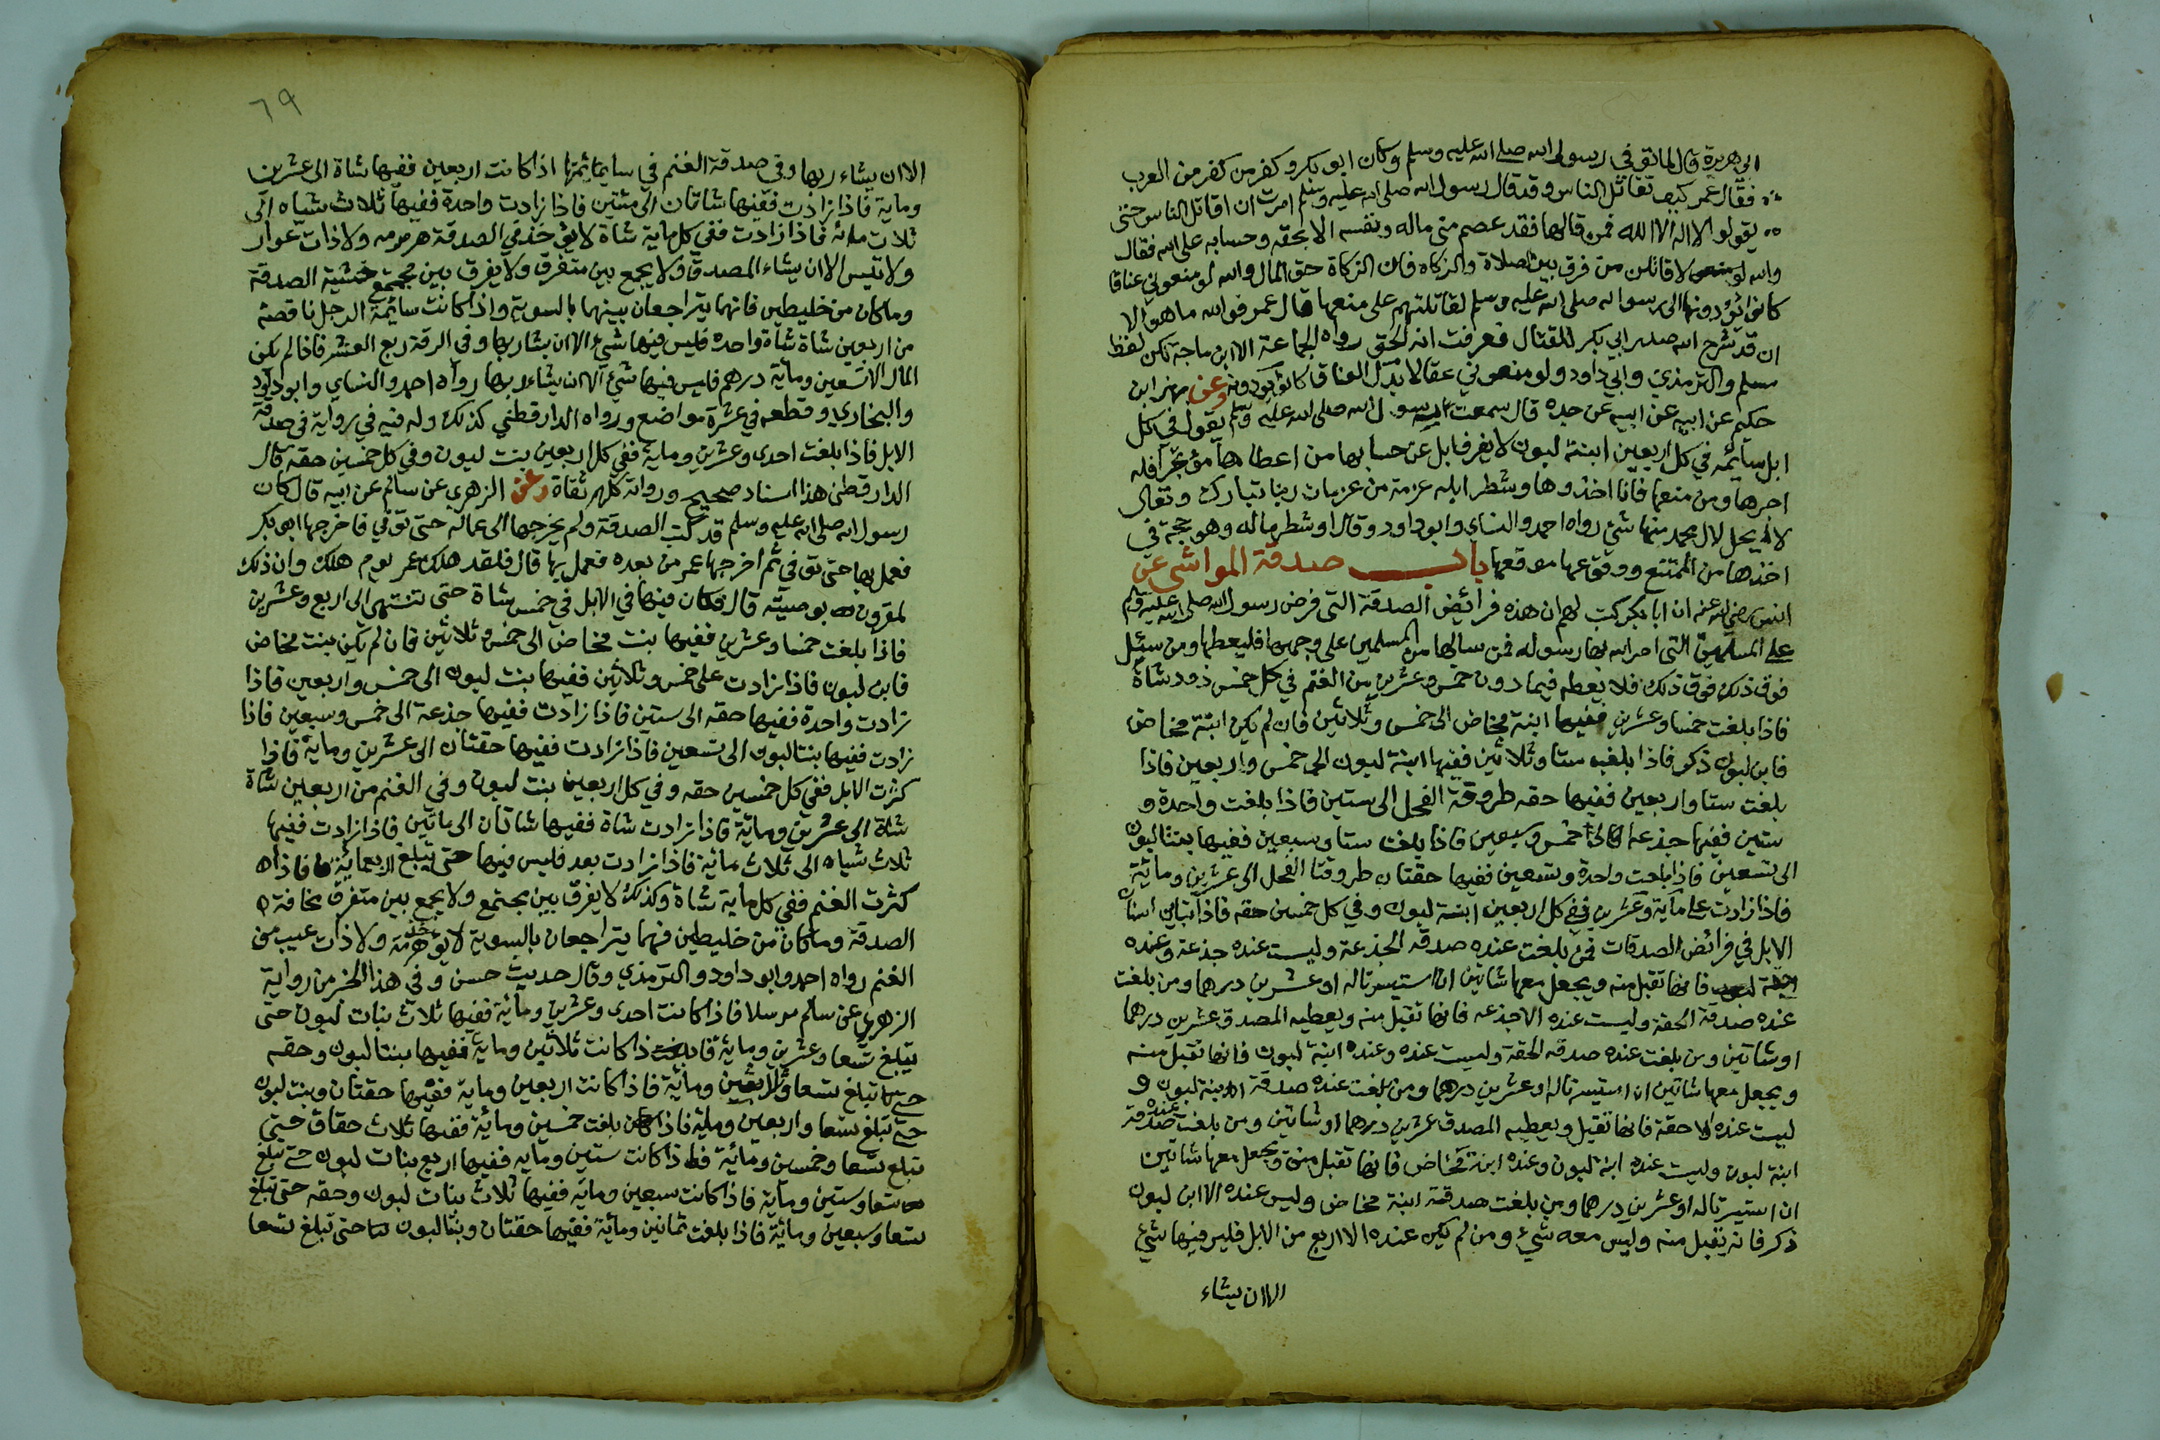 ابي هريرة قال لما توفي رسول الله صلى الله عليه وسلم وكان ابو بكر وكفر من كفر من العرب
فقال عمر كيف تقاتل الناس وقد قال رسول الله صلى الله عليه وسلم امرت ان اقاتل الناس حتى
يقولو لا اله الا الله فمن قالها فقد عصم مني ماله ونفسه الا بحقه وحسابه على الله فقال
والله لاقاتلن من فرق بين الصلاة والزكاه فان الزكاة حق المال والله لو منعوني عناقا
كانوا يؤدونها الى رسول الله صلى الله عليه وسلم لقاتلتهم على منعها قال عمر فوالله ما هو الا
ان قد شرح الله صدر ابي بكر للقتال فعرفت انه الحق رواه الجماعة الا ابن ماجة لكن لفظ
مسلم والترمذي وابي داود ولو منعوني عقالا بدل العناق كانوا يؤدونه وعن بهز ابن
حكيم عن ابيه عن جده قال سمعت رسول الله صلى الله عليه وسلم يقول في كل
ابل سائمه في كل اربعين ابنة لبون لا يفرق ابل عن حسابها من اعطاها مؤتجرا فله
اجرها ومن منعها فانا اخذوها وشطر ابله عزمة من عزمات ربنا تبارك وتعالى
لا يحل لال محمد منها شئ رواه احمد والنساي وابو داود وقال وشطر ماله وهو حجة في
اخذها من الممتنع ووقوعها موقعها باب صدقة المواشي عن
انس رضي الله عنه ان ابا بكر كتب لهم ان هذه فرائض الصدقة التي فرض رسول الله صلى الله عليه وسلم
على المسلمين التي امر الله بها رسوله فمن سالها من المسلمين على وجهها فليعطها ومن سئل
فوق ذلك فلا يعطه فيما دون خمس وعشرين من الغنم في كل خمس ذود شاة
فاذا بلغت خمسا وعشرين ففيها ابنة مخاض الى خمس وثلاثين فان لم يكن ابنة مخاض
فابن لبون ذكر فاذا بلغت ستا وثلاثين ففيها ابنة لبون الى خمس واربعين فاذا
بلغت ستا واربعين ففيها حقه طروقة الفحل الى ستين فاذا بلغت واحدة و
ستين ففيها جذعه الى خمس وسبعين فاذا بلغت ستا وسبعين ففيها بنتا لبون
الى تسعين فاذا بلغت واحدة وتسعين ففيها حقتان طروقتا الفحل الى عشرين ومائة
فاذا زادت على مائة وعشرين ففي كل اربعين ابنة لبون وفي كل خمسين حقه فاذا تباين اسنان
الابل في فرائض الصدقات فمن بلغت عنده صدقه الجذعة وليست عنده جذعة وعنده
حقة فانها تقبل منه ويجعل معها شاتين ان استيسرتا له او عشرين درهما ومن بلغت
عنده صدقة الحقة وليست عنده الا جذعه فانها تقبل منه ويعطيه المصدق عشرين درهما
او شاتين ومن بلغت عنده صدقه الحقة وليست عنده وعنده ابنة لبون فانها تقبل منه
ويجعل معها شاتين ان استيسرتا له او عشرين درهما ومن بلغت عنده صدقة ابنة لبون و
ليست عنده الا حقة فانها تقبل ويعطيه المصدق عشرين درهما او شاتين ومن بلغت عنده صدقة
ابنة لبون وليست عنده ابنة لبون وعنده ابنة مخاض فانها تقبل منه ويجعل معها شاتين
ان استيسرتا له او عشرين درهما ومن بلغت صدقة ابنة مخاض وليس عنده الا ابن لبون
ذكر فانه يقبل منه وليس معه شئ ومن لم يكن عنده الا اربع من الابل فليس فيها شئ
الا ان يشاء
٦٩
الا ان يشاء ربها وفي صدقة الغنم في سايمتها اذا كانت اربعين ففيها شاة الى عشرين
وماية فاذا زادت ففيها شاتان الى مئتين فاذا زادت واحدة ففيها ثلاث شياه الى
ثلاث مائه فاذا زادت ففي كل ماية شاة لا يؤخذ في الصدقة هرمه ولا ذات عوار
ولا تيس الا ان يشاء المصدق ولا يجمع بين متفرق ولا يفرق بين مجتمع خشية الصدقة
وما كان من خليطين فانهما يتراجعان بينهما بالسوية واذا كانت سائمة الرجل ناقصة
من اربعين شاة شاة واحده فليس فيها شئ الا ان يشا ربها وفي الرقة ربع العشر فاذا لم يكن
المال الا تسعين ومائة درهم فليس فيها شئ الا ان يشاء ربها رواه احمد والنساي وابو داود
والبخاري وقطعه في عشرة مواضع ورواه الدارقطني كذلك وله فيه في رواية في صدقة
الابل فاذا بلغت احدى وعشرين وماية ففي كل اربعين بنت لبون وفي كل خمسين حقه قال
الدارقطني هذا اسناد صحيح ورواته كلهم ثقاة وعن الزهري عن سالم عن ابيه قال كان
رسول الله صلى الله عليه وسلم قد كتب الصدقة ولم يخرجها الى عماله حتى توفي فاخرجها ابو بكر
فعمل بها حتى توفي ثم اخرجها عمر من بعده فعمل بها قال فلقد هلك عمر يوم هلك وان ذلك
لمقرون بوصيته قال فكان فيها في الابل في خمس شاة حتى تنتهي الى اربع وعشرين
فاذا بلغت خمسا وعشرين ففيها بنت مخاض الى خمس وثلاثين فان لم يكن بنت مخاض
فابن لبون فاذا زادت على خمس وثلاثين ففيها بنت لبون الى خمس واربعين فاذا
زادت واحدة ففيها حقه الى ستين فاذا زادت ففيها جذعة الى خمس وسبعين فاذا
زادت ففيها بنتا لبون الى تسعين فاذا زادت ففيها حقتان الى عشرين وماية فاذا
كثرت الابل ففي كل خمسين حقه وفي كل اربعين بنت لبون وفي الغنم من اربعين شاة
شاة الى عشرين ومائة فاذا زادت شاة ففيها شاتان الى مائتين فاذا زادت ففيها
ثلاث شياه الى ثلاث مائة فاذا زادت بعد فليس فيها حتى تبلغ اربعماية فاذا
كثرت الغنم ففي كل ماية شاة وكذلك لا يفرق بين مجتمع ولا يجمع بين متفرق مخافة
الصدقة وما كان من خليطين فهما يتراجعان بالسوية لا يؤخذ هرمة ولا ذات عيب من
الغنم رواه احمد وابو داود والترمذي وقال حديث حسن وفي هذا الخبر من رواية
الزهري عن سالم مرسلا فاذا كانت احدى وعشرين ومائة ففيها ثلاث بنات لبون حتى
تبلغ تسعا وعشرين ومائة فاذا كانت ثلاثين وماية ففيها بنتا لبون وحقه
حتى تبلغ تسعا وثلاثين ومائة فاذا كانت اربعين وماية ففيها حقتان وبنت لبون
حتى تبلغ تسعا واربعين وماية فاذا بلغت خمسين ومائة ففيها ثلاث حقاق حتى
تبلغ تسعا وخمسين ومائة فاذا كانت ستين ومايه ففيها اربع بنات لبون حتى تبلغ
تسعا وستين وماية فاذا كانت سبعين وماية ففيها ثلاث بنات لبون وحقه حتى تبلغ
تسعا وسبعين ومائة فاذا بلغت ثمانين ومائة ففيها حقتان وبنتا لبون حتى تبلغ تسعا